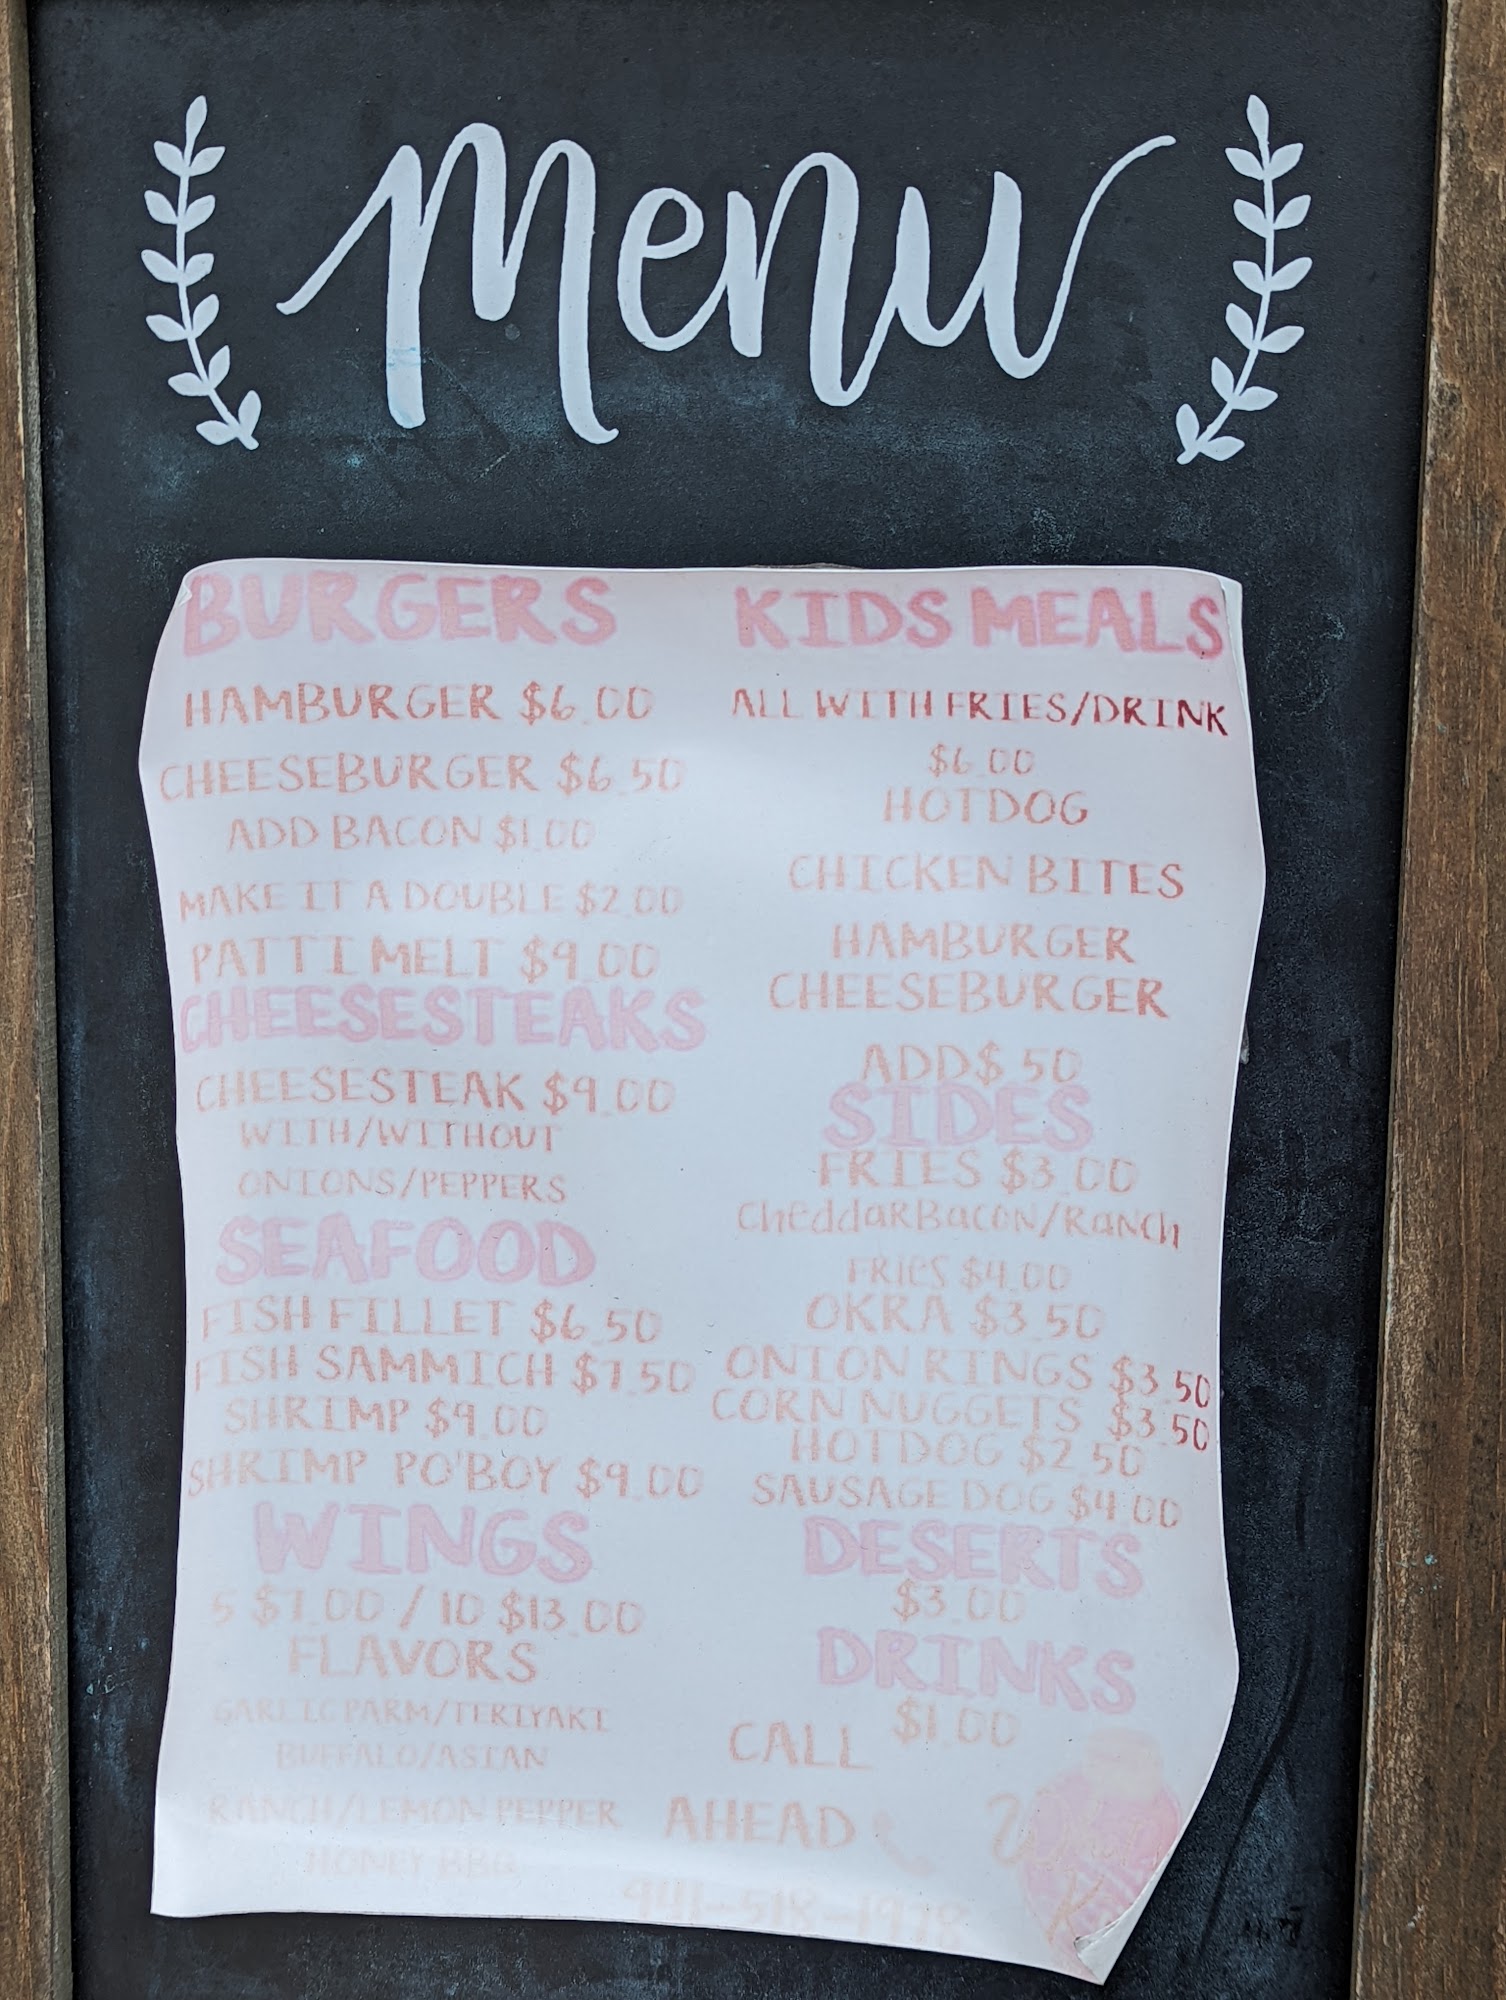 Menu
BURGERS
HAMBURGER $6.00
CHEESEBURGER $6.50
ADD BACON $1.00
MAKE IT A DOUBLE $2.00
PATTI MELT $9.00
CHEESESTEAKS
CHEESESTEAK $9.00
WITH/WITHOUT
ONIONS/PEPPERS
SEAFOOD
FISH FILLET $6.50
FISH SAMMICH $7.50
SHRIMP $9.00
SHRIMP PO'BOY $9.00
WINGS
5 $7.00 / 10 $13.00
FLAVORS
GARLIC PARM/TERIYAKI
BUFFALO/ASIAN
RANCH/LEMON PEPPER
HONEY BBQ
KIDS MEALS
ALL WITH FRIES/DRINK
$6.00
HOTDOG
CHICKEN BITES
HAMBURGER
CHEESEBURGER
ADD $.50
SIDES
FRIES $3.00
CheddaR BacoN/RaNch
FRIes $4.00
OKRA $3.50
ONION RINGS $3.50
CORN NUGGETS $3.50
HOTDOG $2.50
SAUSAGE DOG $4.00
DESERTS
$3.00
DRINKS
$1.00
CALL
AHEAD
941-518-1978